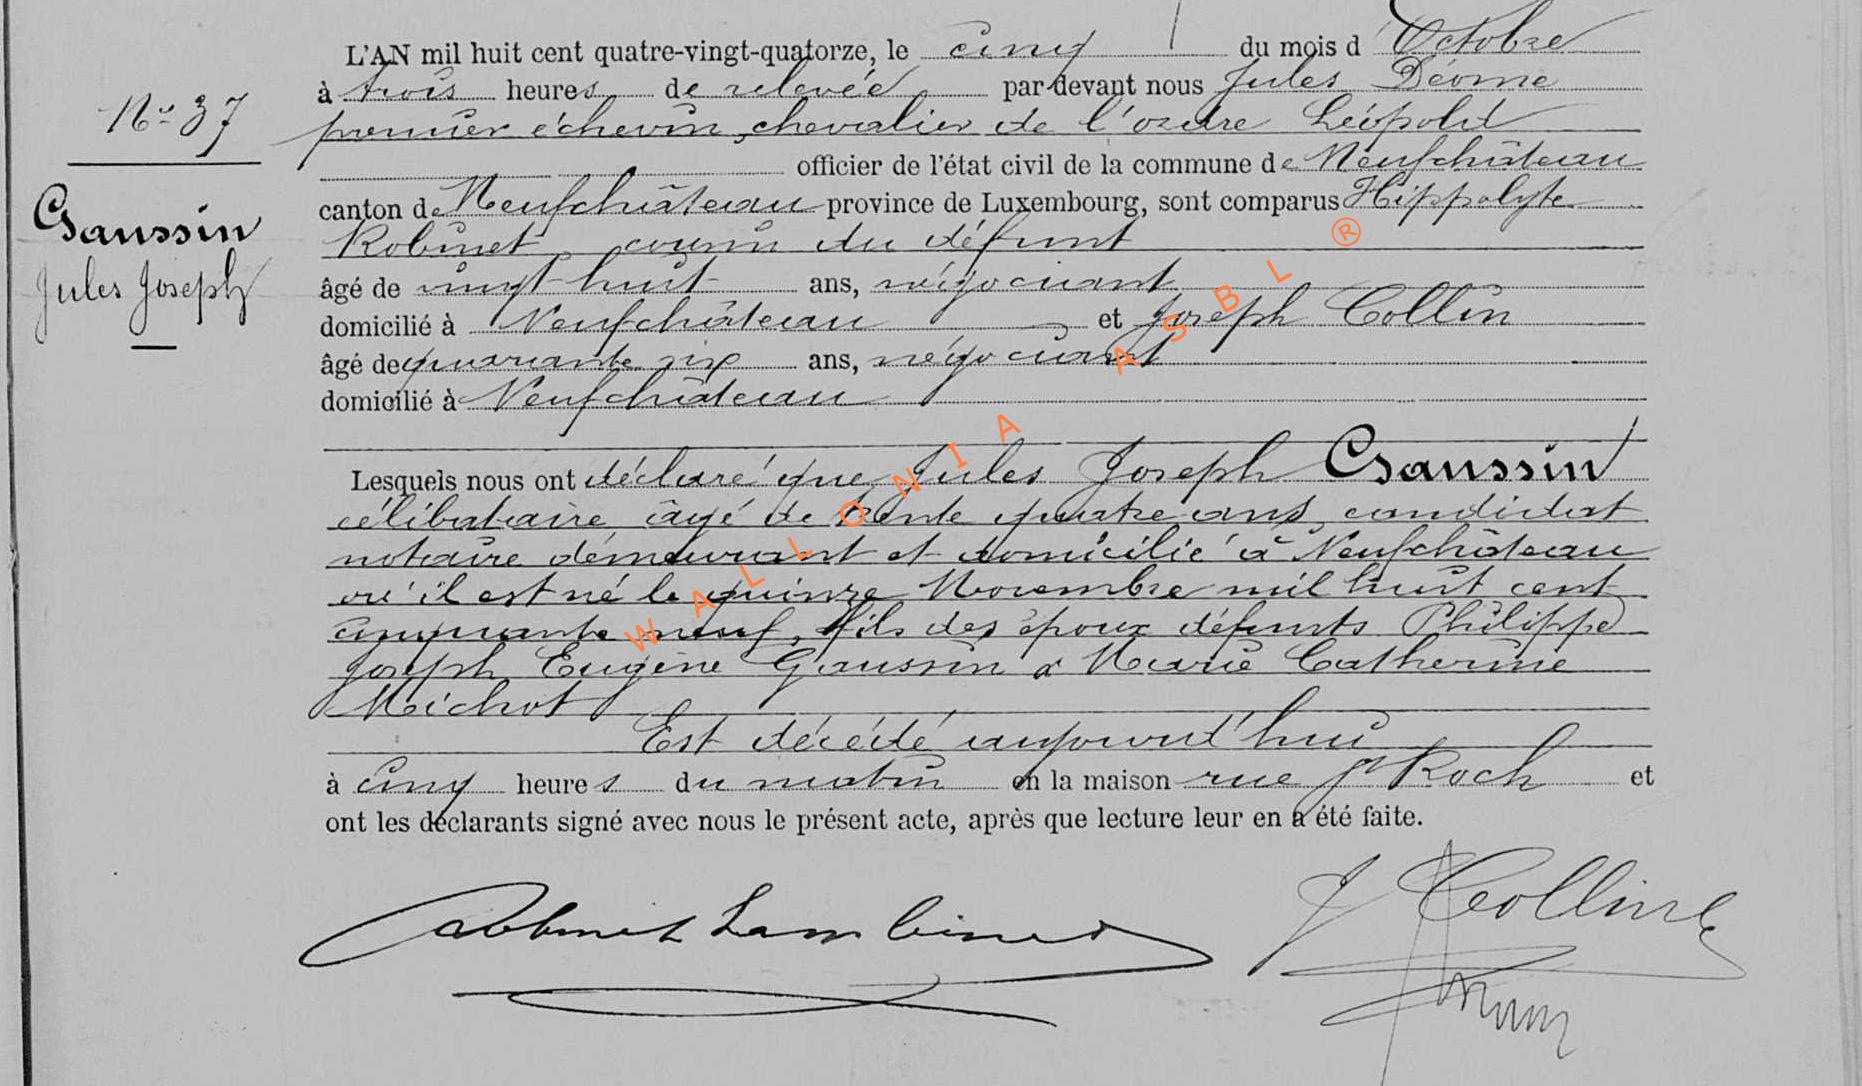 L'AN mil huit cent quatre-vingt-quatorze, le cinq du mois d'Octobre
à trois heures de relevée par devant nous Jules Déome
premier échevin, chevalier de l'ordre Léopold
officier de l'état civil de la commune de Neufchâteau
canton de Neufchâteau province de Luxembourg, sont comparus Hippolyte
Robinet cousin du défunt
âgé de vingt-huit ans, négociant
domicilié à Neufchâteau et Joseph Collin
âgé de quarante six ans, négociant
domicilié à Neufchâteau
N° 37
Gaussin
Jules Joseph
Lesquels nous ont déclaré que Jules Joseph Gaussin
célibataire âgé de trente quatre ans, candidat
notaire demeurant et domicilié à Neufchâteau
où il est né le quinze Novembre mil huit cent
cinquante neuf, fils des époux défunts Philippe
Joseph Eugène Gaussin & Marie Catherine
Michot
Est décédé aujourd'hui
à cinq heures du matin en la maison rue St Roch et
ont les déclarants signé avec nous le présent acte, après que lecture leur en a été faite.
Robinet Lambinet
J Collin
WALLONIA ASBL ®